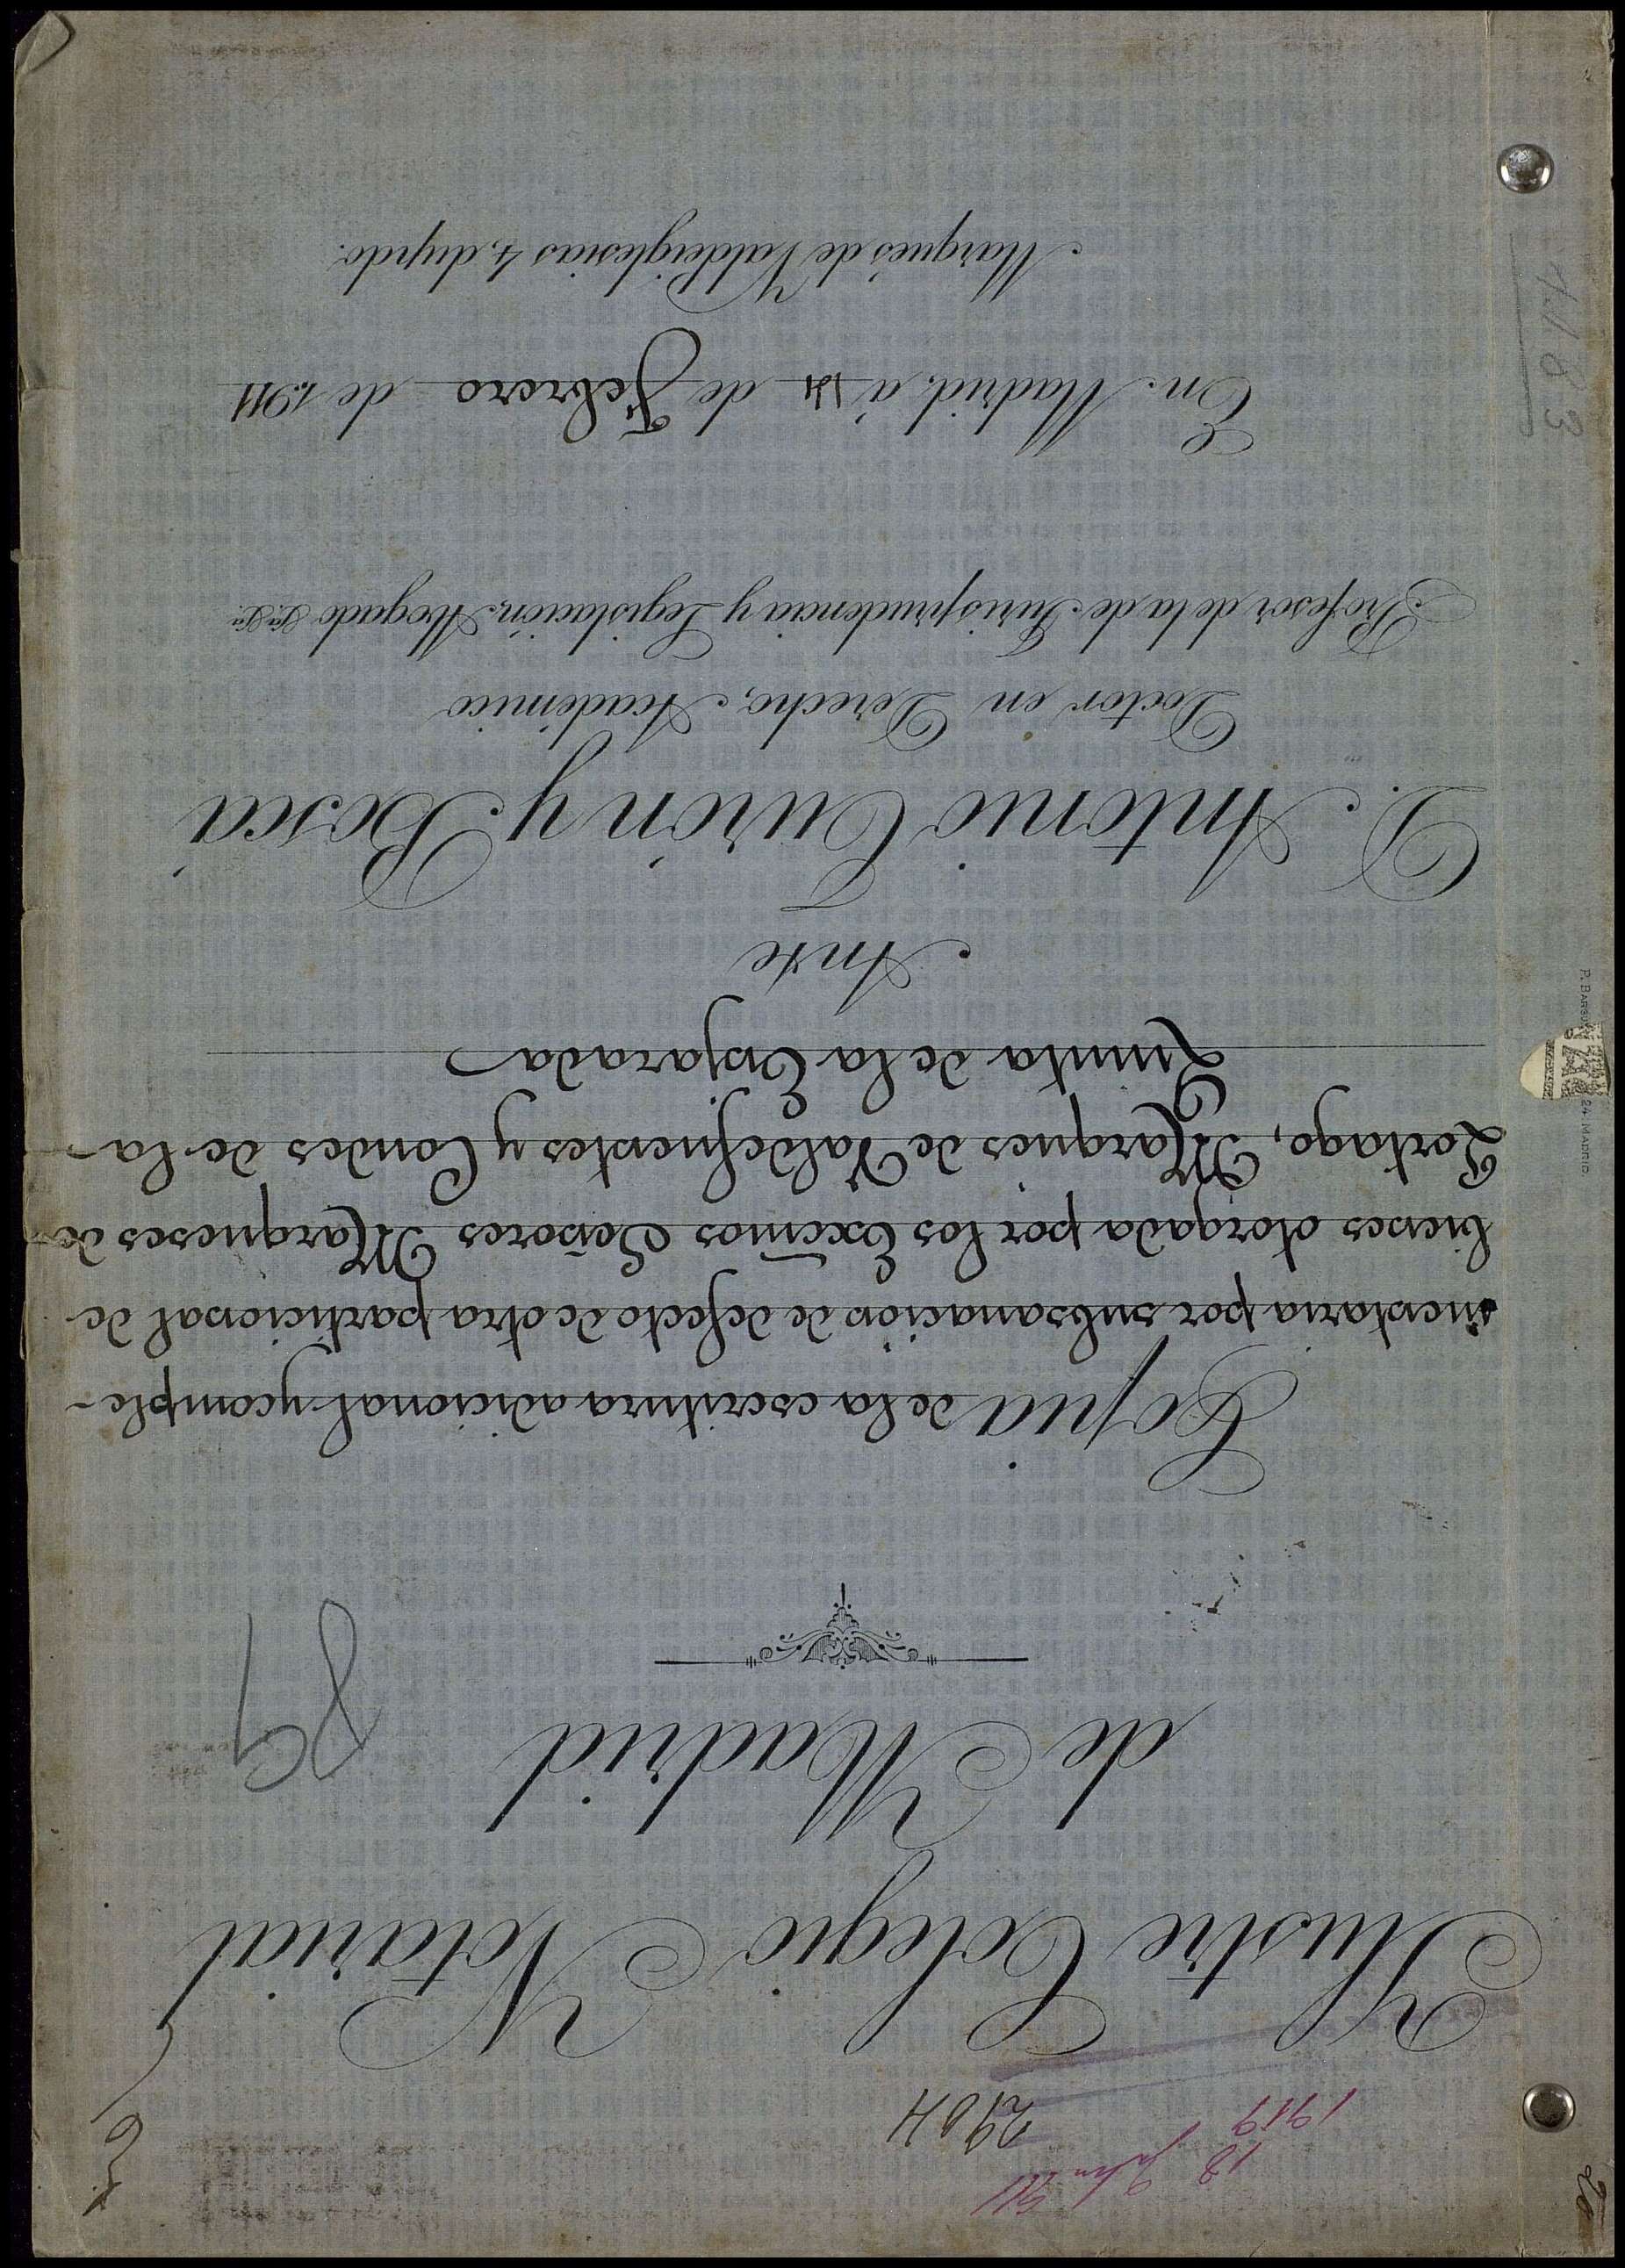 2964
1919
Ilustre Colegio Notarial
de Madrid
89
Copia de la escritura adicional y comple-
mentaria por subsanacion de defecto de otra particional de
bienes otorgada por los Excmos Señores Marqueses de
Portago, Marques de Valdefuentes y Condes de la
Quinta de la Enjarada
Ante
D. Antonio Turón y Boscá
Doctor en Derecho, Académico
Profesor de la de Jurisprudencia y Legislación, Abogado
En Madrid, á 14 de Febrero de 1.911
Marqués de Valdeiglesias 4, dupdo.
1.183